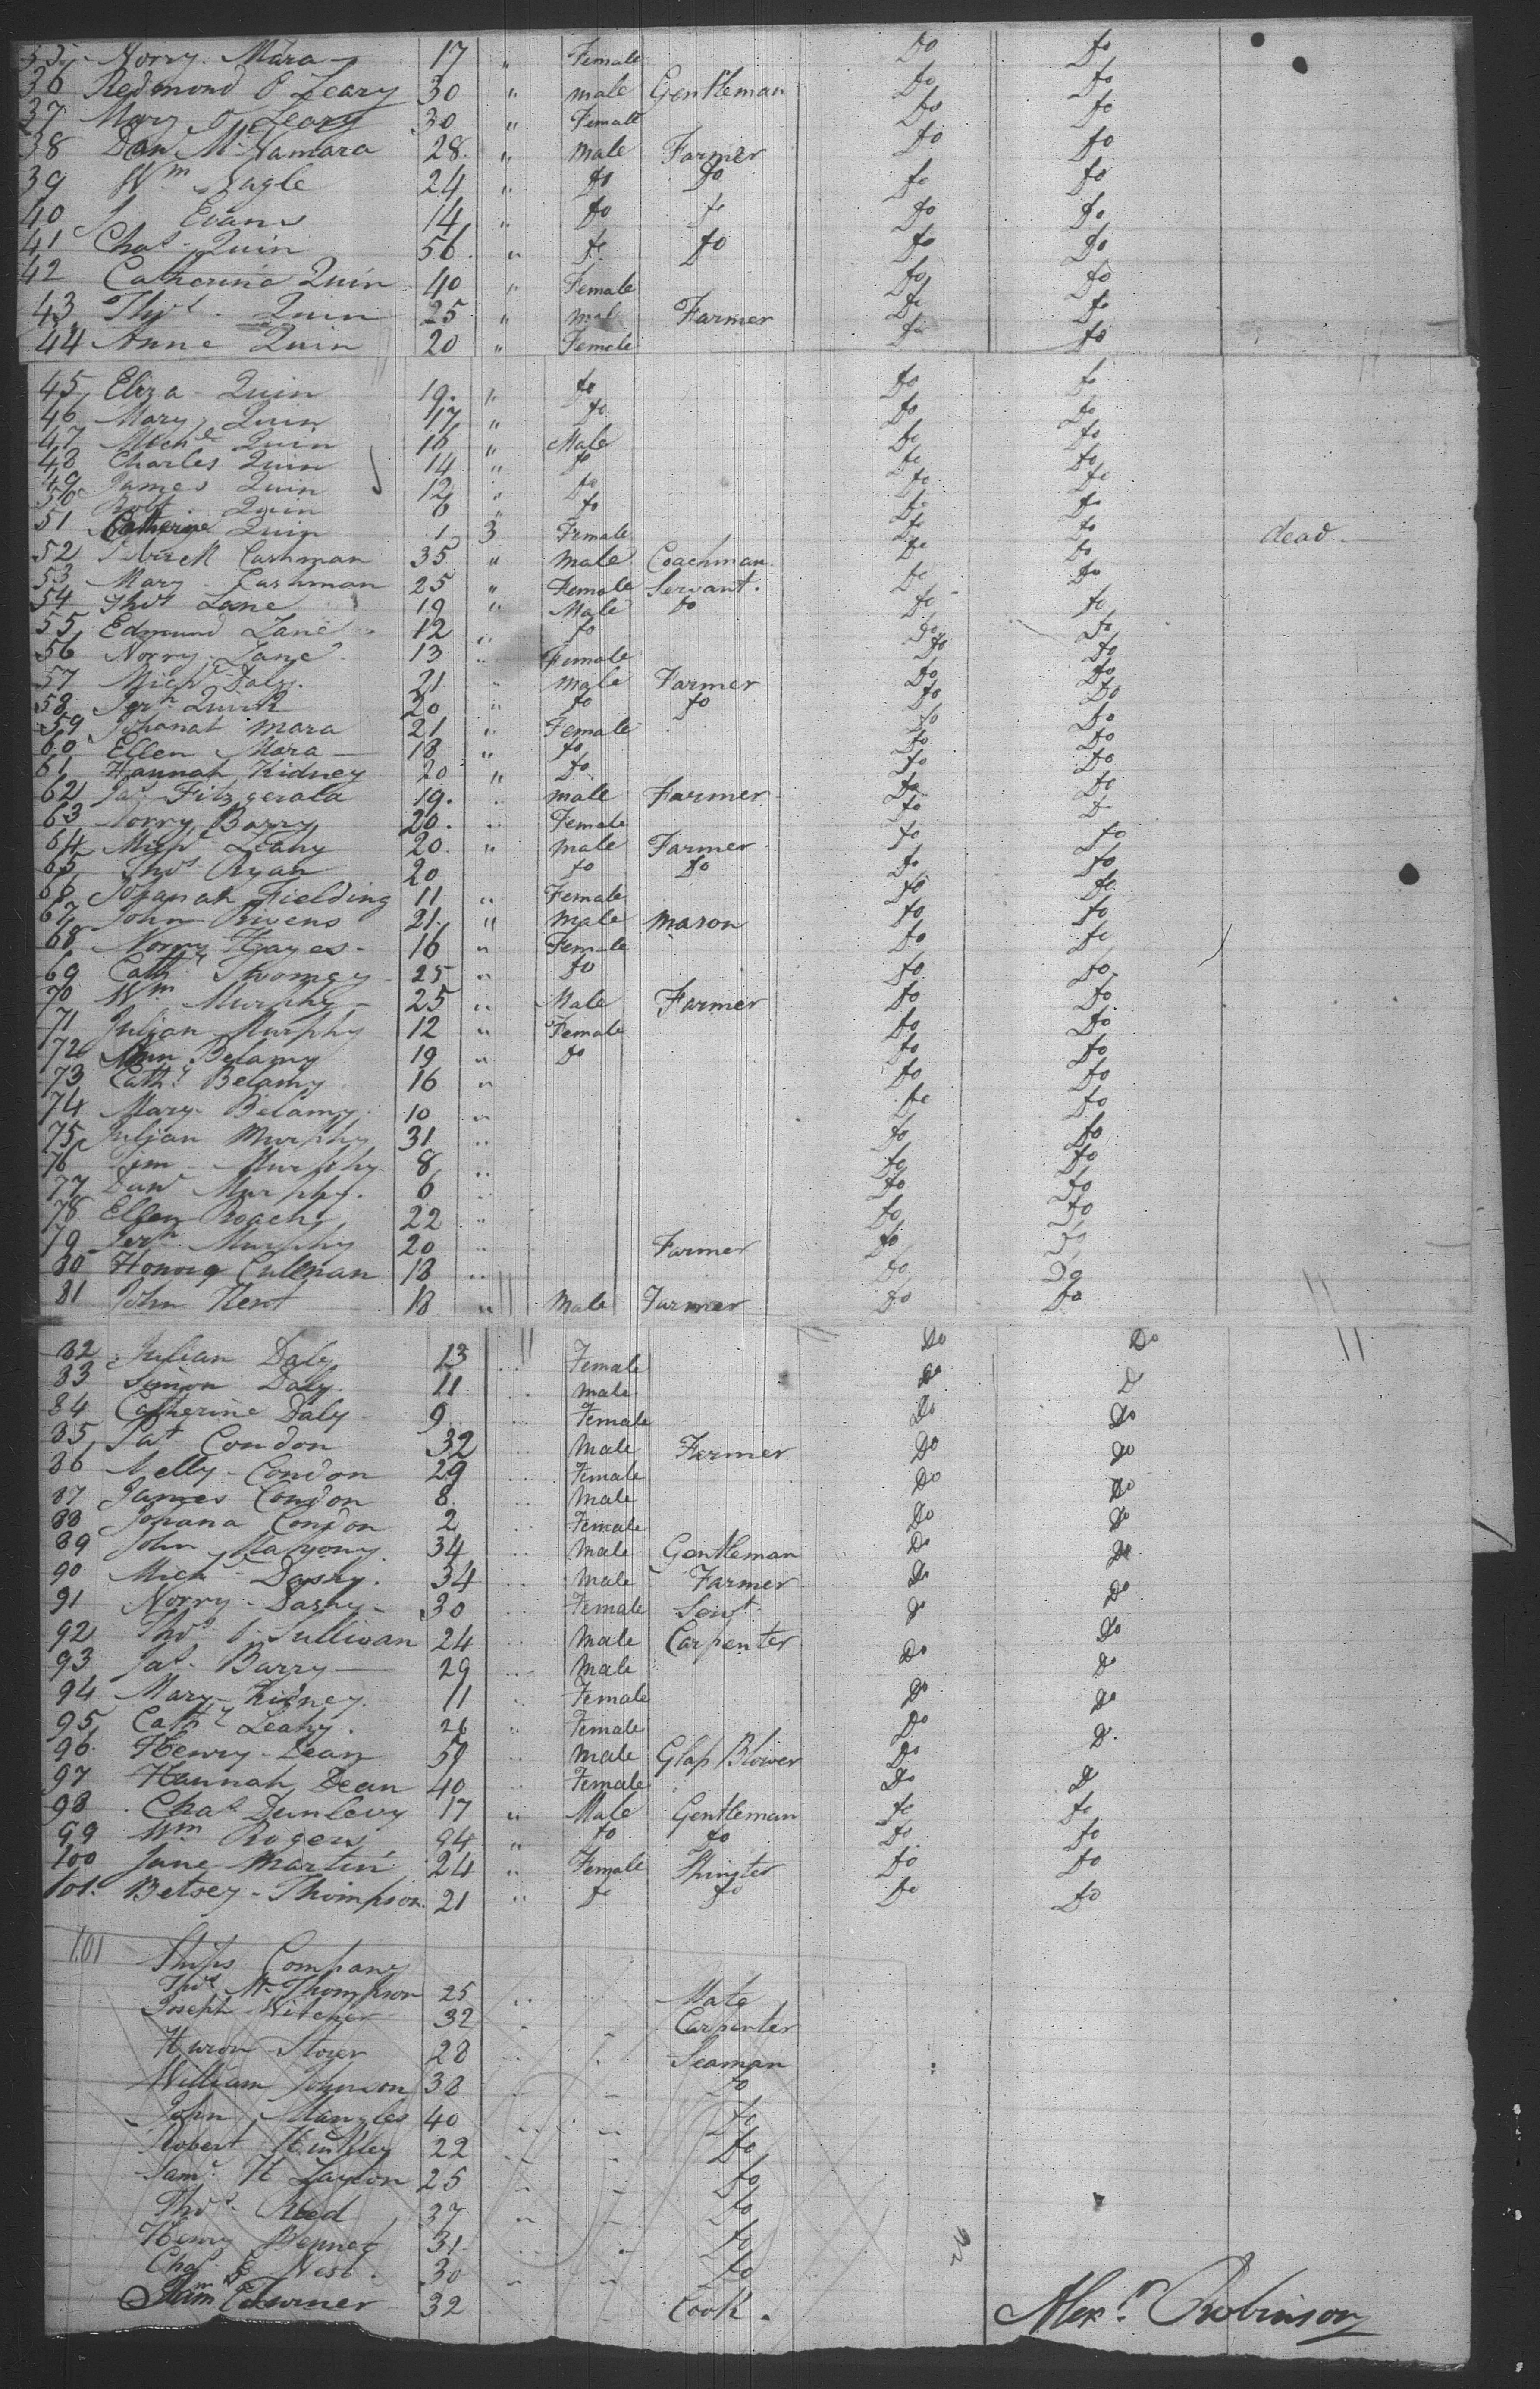 35 Norry Mara 17 " Female Do Do
36 Redmond O Leary 30 " male Gentleman Do Do
37 Mary O Leary 30 " Female Do Do
38 Dan McNamara 28 " male Farmer Do Do
39 Wm Nagle 24 " Do Do Do Do
40 J Evans 14 " Do Do Do Do
41 Chas Quin 56 " Do Do Do Do
42 Catherine Quin 40 " Female Do Do
43 Thos Quin 25 " male Farmer Do Do
44 Anne Quin 20 " Female Do Do
45 Eliza Quin 19 " Do Do Do
46 Mary Quin 17 " Do Do Do
47 Michl Quin 16 " Male Do Do
48 Charles Quin 14 " Do Do Do
49 James Quin 12 " Do Do Do
50 Robt Quin 6 " Do Do Do
51 Catherine Quin 1 3 Female Do Do dead
52 Patrick Cashman 35 " male Coachman Do Do
53 Mary Cashman 25 " Female Servant Do Do
54 Thos Lane 19 " Male Do Do Do
55 Edmund Lane 12 " Do Do Do
56 Norry Lane 13 " Female Do Do
57 Michl Daly 21 " male Farmer Do Do
58 Jerh Quirk 20 " Do Do Do Do
59 Johanah Mara 21 " Female Do Do
60 Ellen Mara 18 " Do Do Do
61 Hannah Kidney 20 " Do Do Do
62 Jas Fitzgerald 19 " male Farmer Do Do
63 Norry Barry 20 " Female Do Do
64 Michl Leahy 20 " male Farmer Do Do
65 Thos Ryan 20 Do Do Do Do
66 Johanah Fielding 11 " Female Do Do
67 John Owens 21 " male mason Do Do
68 Norry Hayes 16 " Female Do Do
69 Cathe Twomey 25 " Do Do Do
70 Wm Murphy 25 " Male Farmer Do Do
71 Julian Murphy 12 " Female Do Do
72 Ann Belamy 19 " Do Do Do
73 Cathe Belamy 16 " Do Do
74 Mary Belamy 10 " Do Do
75 Julian Murphy 31 " Do Do
76 Tim Murphy 8 " Do Do
77 Danl Murphy 6 " Do Do
78 Ellen Roach 22 " Do Do
79 Jerh Murphy 20 " Farmer Do Do
80 Honora Cullenan 18 " Do Do
81 John Kent 18 " Male Farmer Do Do
82 Julian Daly 13 " Female Do Do
83 Simon Daly 11 " male Do Do
84 Catherine Daly 9 " Female Do Do
85 Pat Condon 32 " Male Farmer Do Do
86 Nelly Condon 29 " Female Do Do
87 James Condon 8 " Male Do Do
88 Johana Condon 2 " Female Do Do
89 John 34 " Male Gentleman Do Do
90 Michl 34 " Male Farmer Do Do
91 Norry 30 " Female Servt Do Do
92 Thos O Sullivan 24 " Male Carpenter Do Do
93 Jas Barry 29 " Male Do Do
94 Mary Kidney 11 " Female Do Do
95 Cathe Leahy 26 " Female Do Do
96 Henry Dean 59 " Male Glass Blower Do Do
97 Hannah Dean 40 " Female Do Do
98 Chas Dunlevy 17 " Male Gentleman Do Do
99 Wm Rogers 24 " Do Do Do Do
100 Jane Martin 24 " Female Spinster Do Do
101 Betsey Thompson 21 " Do Do Do Do
101 Ships Company
Thos M Thompson 25 " " Mate
Joseph Witcher 32 " Carpenter
Huron Stover 28 " Seaman
William Johnson 38 " Do
John Mangles 40 " Do
Robert Hinkley 22 " Do
Saml H Layton 25 " Do
Thos Reed 37 " Do
Henry Bennet 31 " Do
Chas E West 30 " Do
Saml Turner 32 " Cook
Alexr Robinson